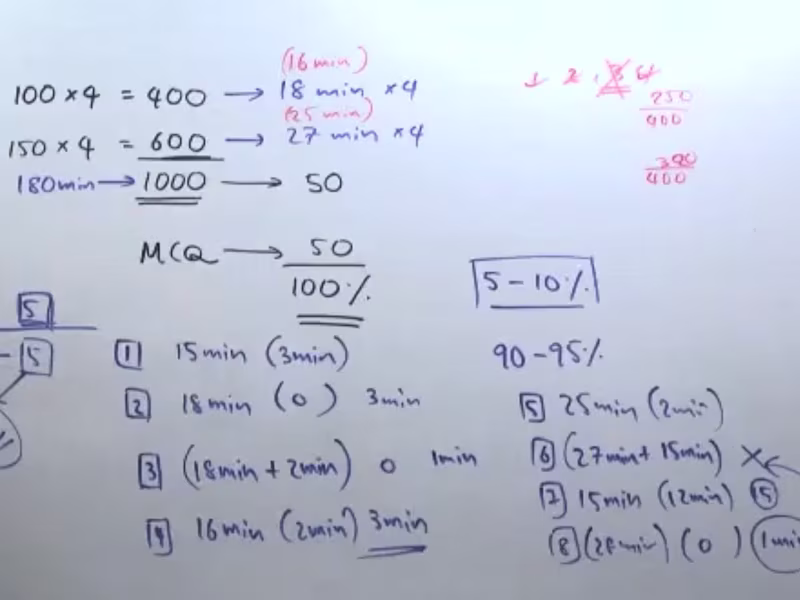 (16 min)
100 × 4 = 400 → 18 min × 4
(25 min)
150 × 4 = 600 → 27 min × 4
180min → 1000 → 50
1 2 . 3 4
250
400
390
400
MCQ → 50
100%
5 - 10%
90 - 95%
5
- 5
1 15min (3min)
2 18min (0) 3min
3 (18min + 2min) 0 1min
4 16min (2min) 3min
5 25min (2min)
6 (27min + 15min) ×
7 15min (12min) 15
8 (min) (0) 1min